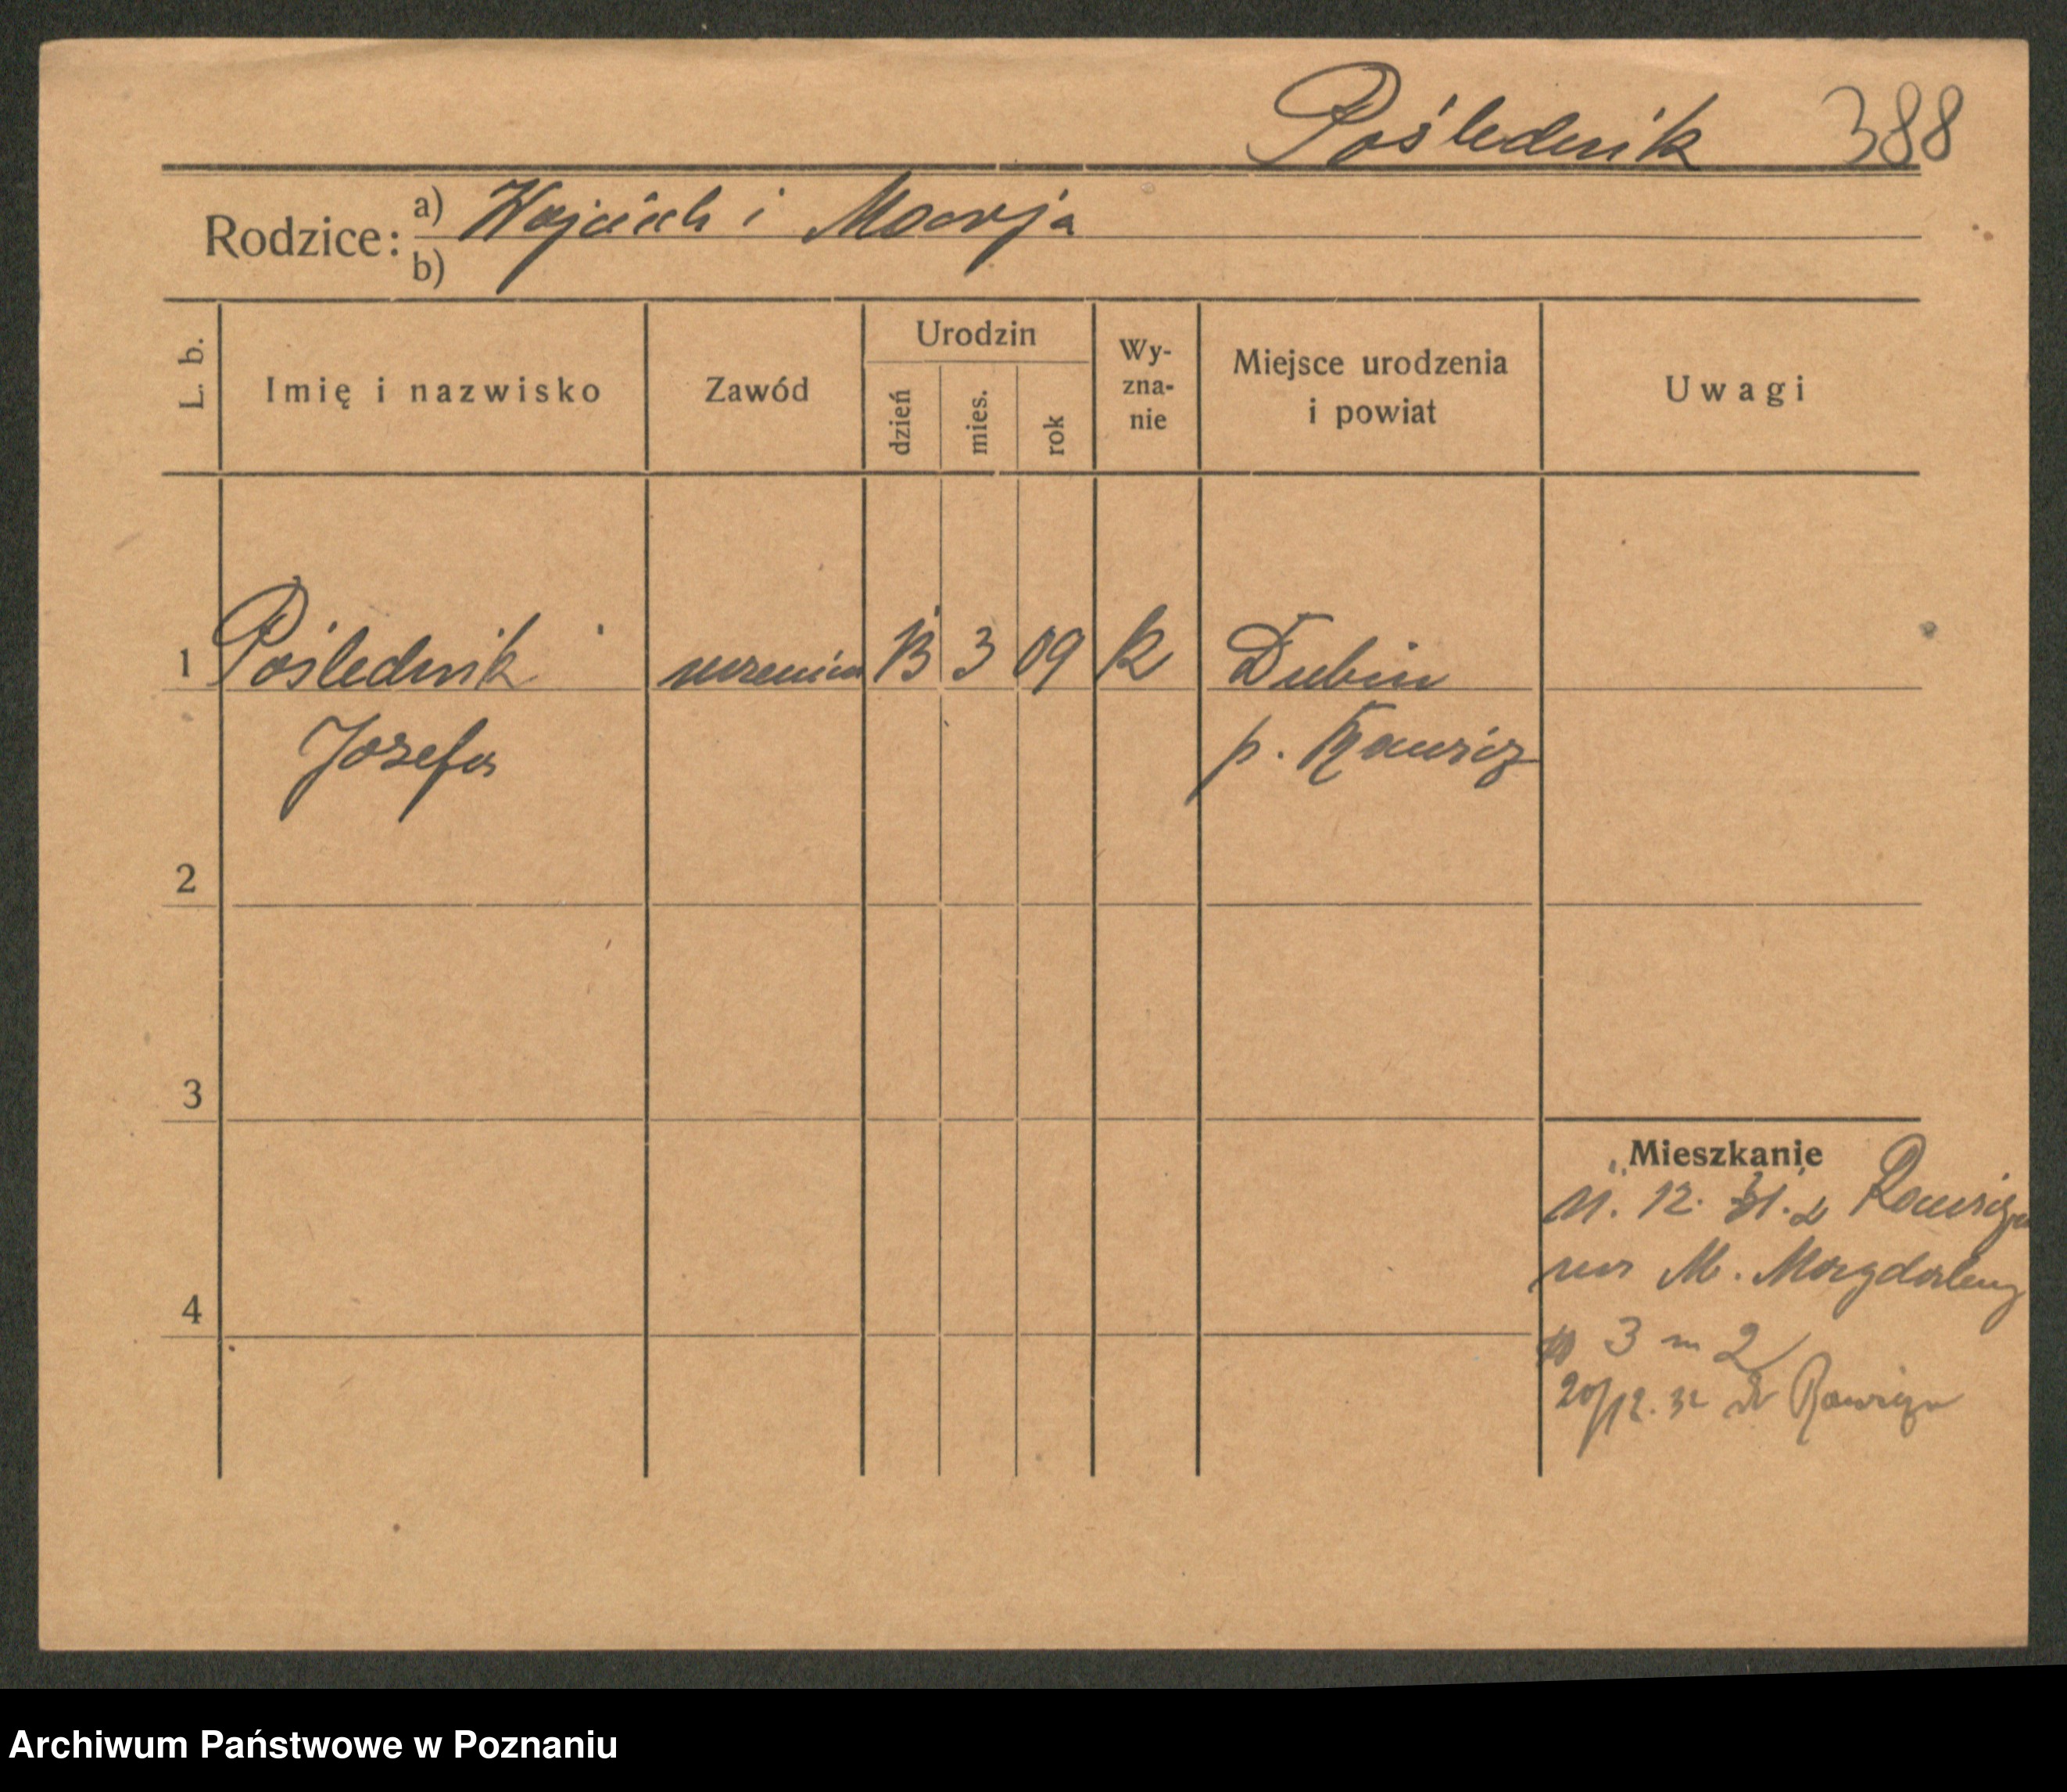 Poślednik 388
Rodzice: a) Wojciech i Marja
b)
L. b. Imię i nazwisko Zawód Urodzin dzień mies. rok Wy-zna-nie Miejsce urodzenia i powiat Uwagi
1 Poślednik uczenica 13 3 09 k Dubin
Józefa p. Rawicz
2
3
4
Mieszkanie
11. 12. 31. z Rawicza
na M. Magdaleny
3 m 2
20/12. 32 do Rawicza
Archiwum Państwowe w Poznaniu